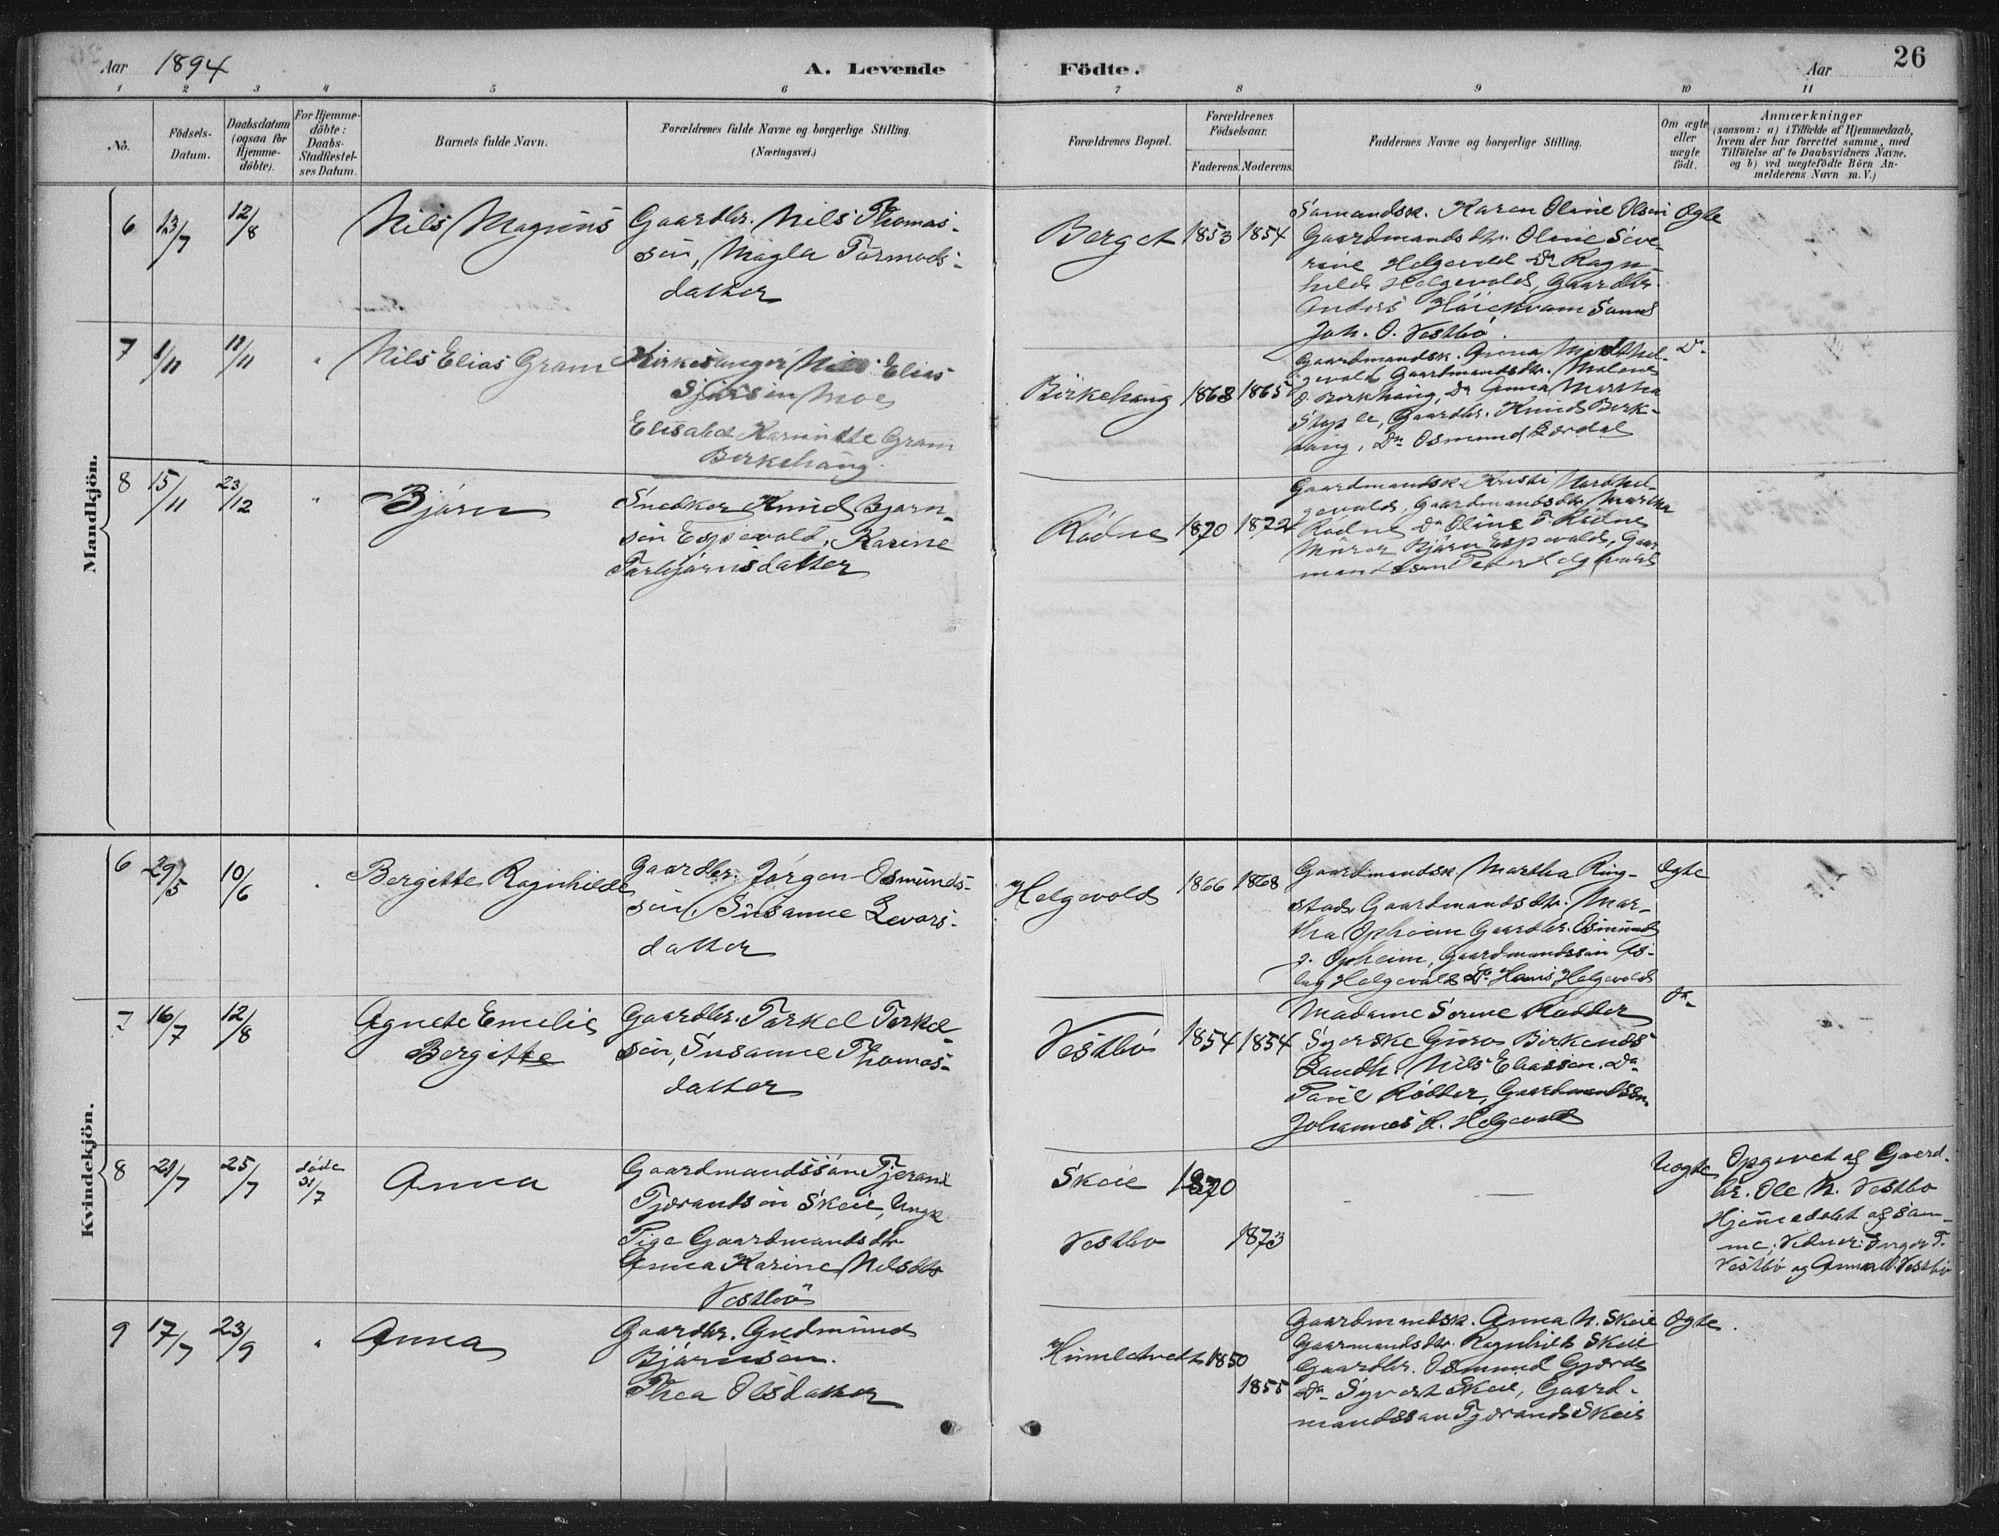 Aar 1894
A. Levende Födte.
Aar
26
1 2 3 4 5 6 7 8 9 10 11
No.
Födsels-
Datum.
Daabsdatum
(ogsaa for
Hjemme-
døbte).
For Hjemme-
döbte:
Daabs-
Stadfæstel-
ses Datum.
Barnets fulde Navn.
Forældrenes fulde Navne og borgerlige Stilling.
(Næringsvei.)
Forældrenes Bopæl.
Forældrenes
Födselsaar.
Faderens. Moderens.
Faddernes Navne og borgerlige Stilling.
Om ægte
eller
uægte
födt.
Anmærkninger
(saasom: a) i Tilfælde af Hjemmedaab,
hvem der har forrettet samme, med
Tilföielse af to Daabsvidners Navne.
og b) ved uægtefödte Börn An-
melderens Navn m. V.)
Mandkjön.
6 13/7 12/8
Nils Magnus
Gaardbr. Nils Thomas-
sön, Magla Tormods-
datter
Berget 1853 1854
Sömandsk. Karen Oline Olsen
Gaardmandsdtr. Oline Seve-
rine Helgevold Do Ragn-
hilde Helgevold, Gaardbr.
Joh. O. Vestbö.
Ægte
7 1/11 11/11 "
Nils Elias Gram
Kirkesanger Nils Elias
Moe
Elisabet Gram
Birkehaug.
Birkehaug 1868 1865
Gaardmandsk. Anna
gevold Gaardmandsdtr. Malene
O. Berkhaug, Do Anna Martha
Gaardbr. Knud Berk-
haug, Do Osmund Lerdal
Do
8 15/11 23/12 "
Björn
Snedker Knud Bjørn-
sön Espevold, Karine
Torbjörnsdatter
Rödne 1870 1872
Gaardmandsk. Kristi Marthe
gevold, Gaardmandsdtr. Martha
Rödne Do Oline T. Rödne
Murer Björn Espevold, Gaar
mandssön Peder Helgevold
Kvindekjön.
6 29/5 10/6 "
Bergitte Ragnhilde
Gaardbr. Jörgen Osmunds-
sön, Susanne Sevars-
datter
Helgevold 1866 1868
Gaardmandsk. Martha Ring-
stad Gaardmandsdtr. Mar-
tha Opheim Gaardbr. Osmund
J. Opheim, Gaardmandssön As-
lag Helgevold Do Hans Helgevold
Ægte
7 16/7 12/8
Agnete Emelie
Bergitte
Gaardbr. Torkel Torkel-
sön, Susanne Thomas-
datter
Vestbö 1854 1854
Madame Serine Rödder
Syerske Guro Birkeness
Landh. Nils Eliassen, Do
Paul Rödder, Gaardmandssön
Johannes L. Helgevold
Do
8 21/7 25/7
döde
31/7
Anna
Gaardmandssön Tjerand
Tjerandsön Skeie, Ungk
Pige Gaardmandsdtr.
Anna Karine Nilsdtr
Vestbö
Skeie 1870
Vestbö 1873
— —
Uægte
Opgivet af Gaard-
br. Ole N. Vestbö
Hjemmedöbt af sam-
me; Vidner: Inger T.
Vestbö og Anna N. Vestbö
9 17/7 23/9 "
Anna
Gaardbr. Gudmund
Björnsen.
Thea Olsdatter
1850
1855
Gaardmandsk. Anna N. Skeie
Gaarmandsdtr. Ragnhild Skeie
Gaardbr. Osmund Gjerde
Do Syvert Skeie, Gaard-
mandssön Tjerand Skeie
Ægte.